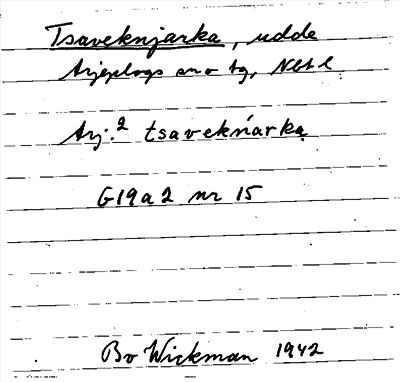 Tsaveknjarka, udde
Arjeplogs sn o tg, Nbtl
Arj.² tsavekńarkа
G19a2 nr 15
Bo Wickman 1942